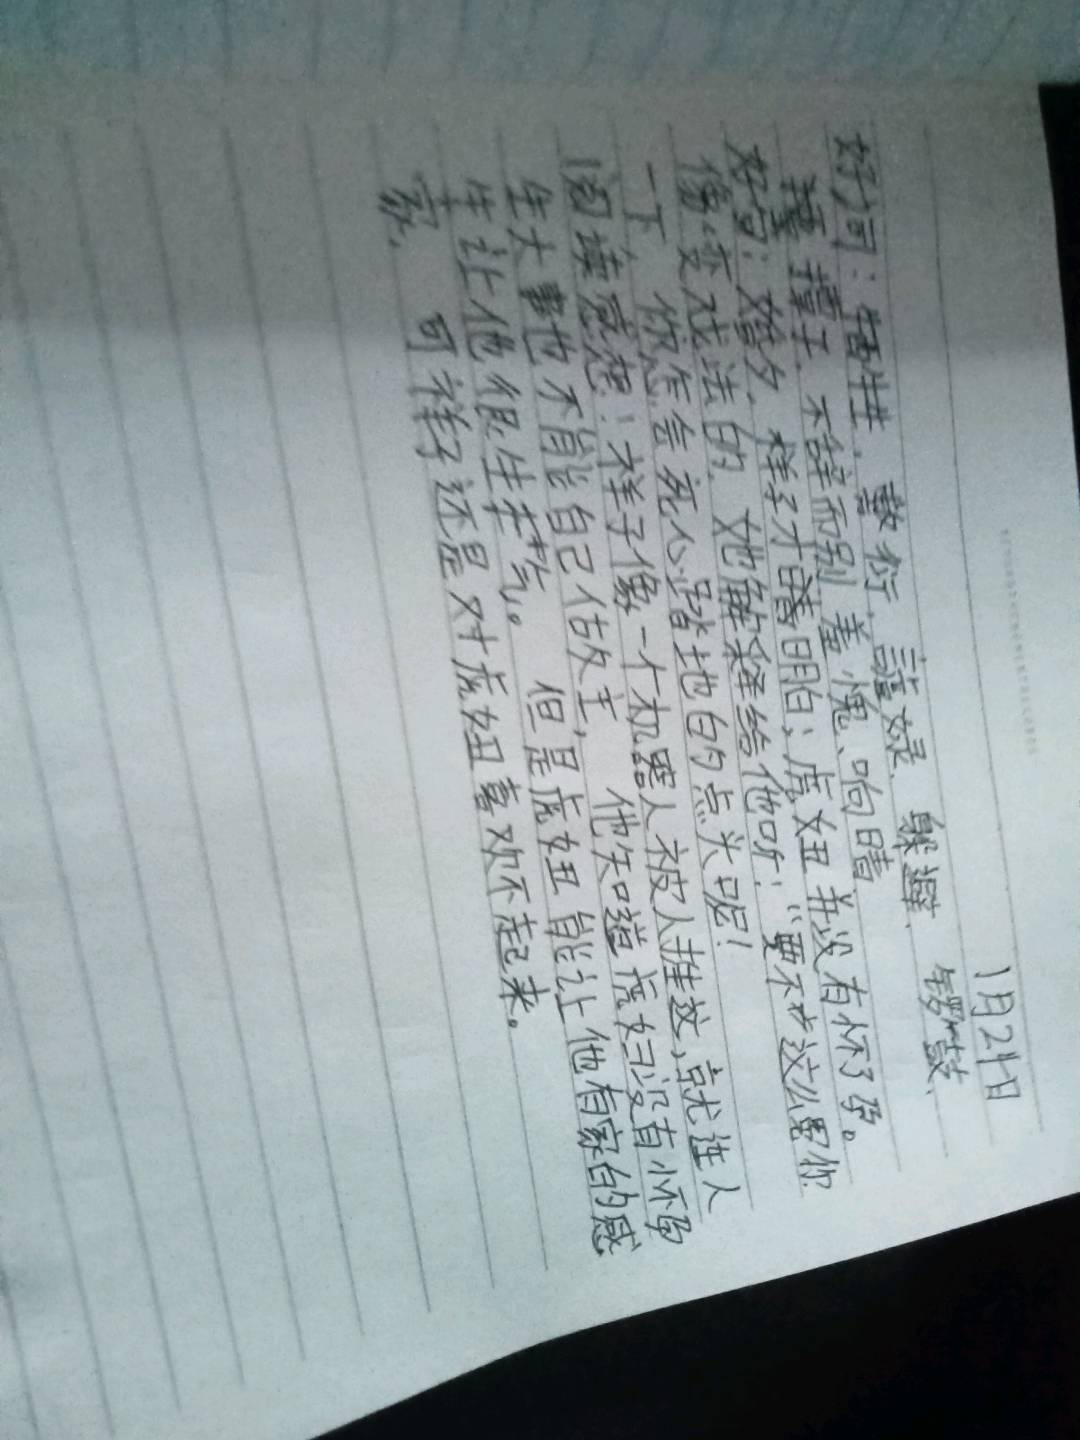 1月24日
好词：牺牲、敷衍、躲避、锣鼓、
撞子、不辞而别、羞愧、响晴
好句：婚夕，祥子才明白：虎妞并没有怀了孕。
像变戏法的，她解释给他听：“要不这么冤你
一下，你怎会死心踏地的点头呢！
阅读感想：祥子像一个机器人被人推放，就连人
生大事也不能自己做主，他知道虎妞没有怀孕
生让他很生气。但是虎妞能让他有家的感
家，可祥子还是对虎妞喜欢不起来。